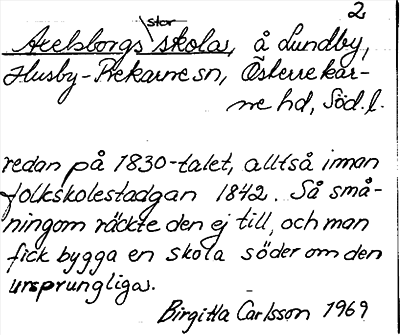 2
stor
Axelsborgs skola, å Lundby,
Husby-Rekarne sn, Österrekar-
ne hd, Söd. l.
redan på 1830-talet, alltså innan
folkskolestadgan 1842. Så små-
ningom räckte den ej till, och man
fick bygga en skola söder om den
ursprungliga.
Birgitta Carlsson 1969